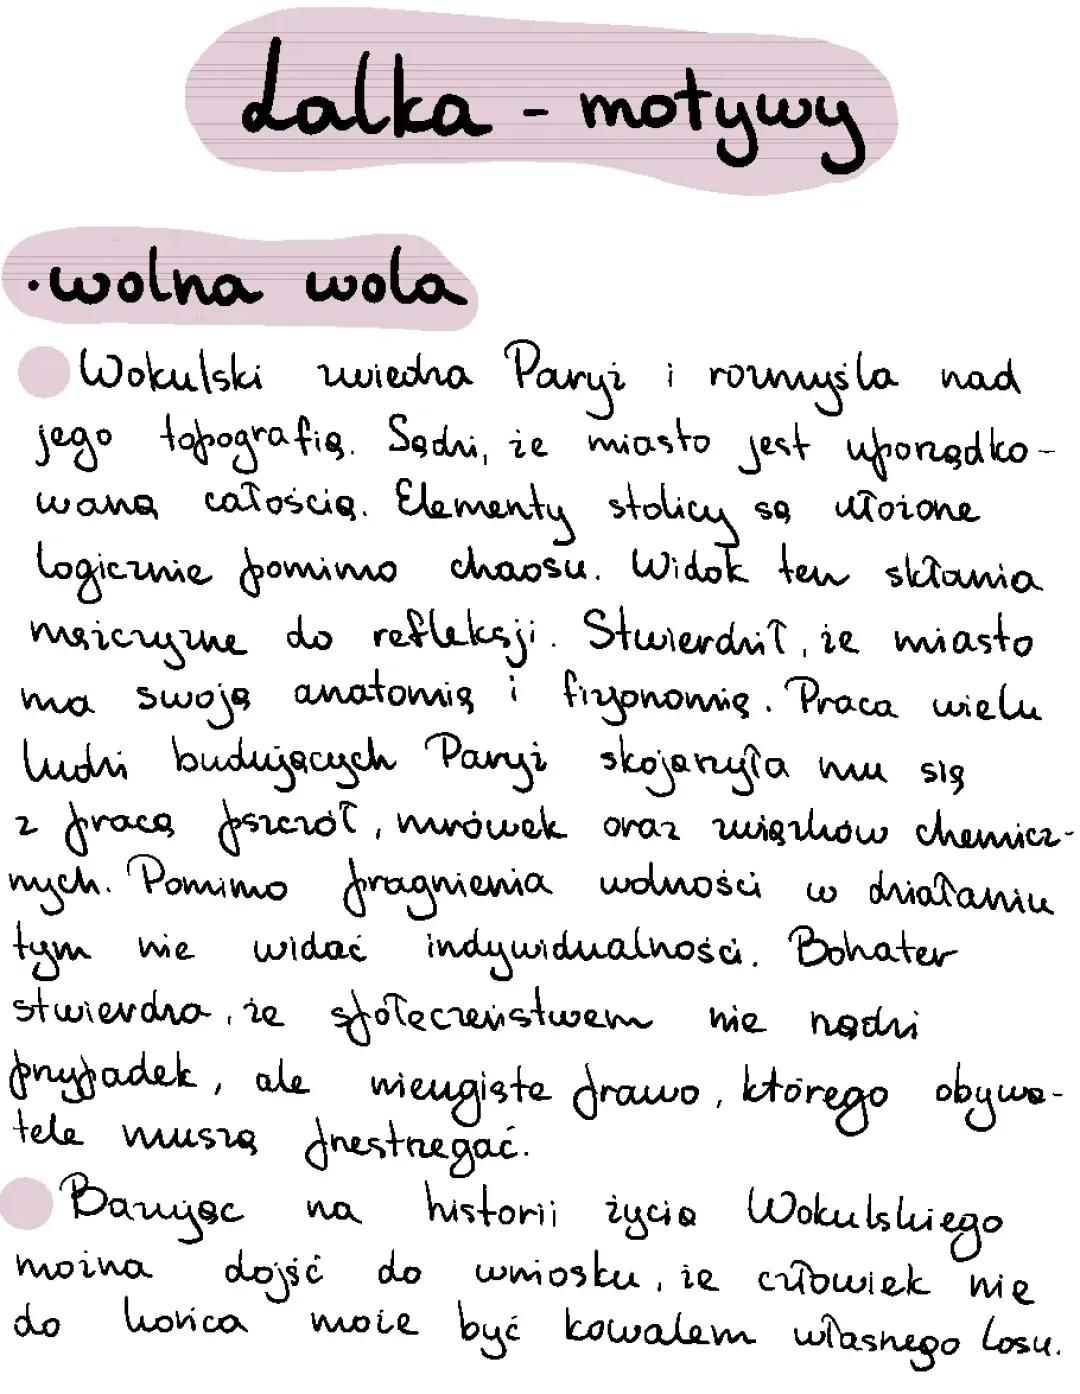 Lalka - motywy
• wolna wola
Wokulski zwiedza Paryż i rozmyśla nad
jego topografią. Sądzi, że miasto jest uporządko-
waną całością. Elementy stolicy są ułożone
logicznie pomimo chaosu. Widok ten skłania
mężczyznę do refleksji. Stwierdził, że miasto
ma swoją anatomię i fizyonomię. Praca wielu
ludzi budujących Paryż skojarzyła mu się
z pracą pszczół, mrówek oraz związków chemicz-
nych. Pomimo pragnienia wolności w działaniu
tym nie widać indywidualności. Bohater
stwierdza, że społeczeństwem nie rządzi
przypadek, ale nieugięte prawo, którego obywa-
tele muszą przestrzegać.
Bazując na historii życia Wokulskiego
można dojść do wniosku, że człowiek nie
do końca może być kowalem własnego losu.